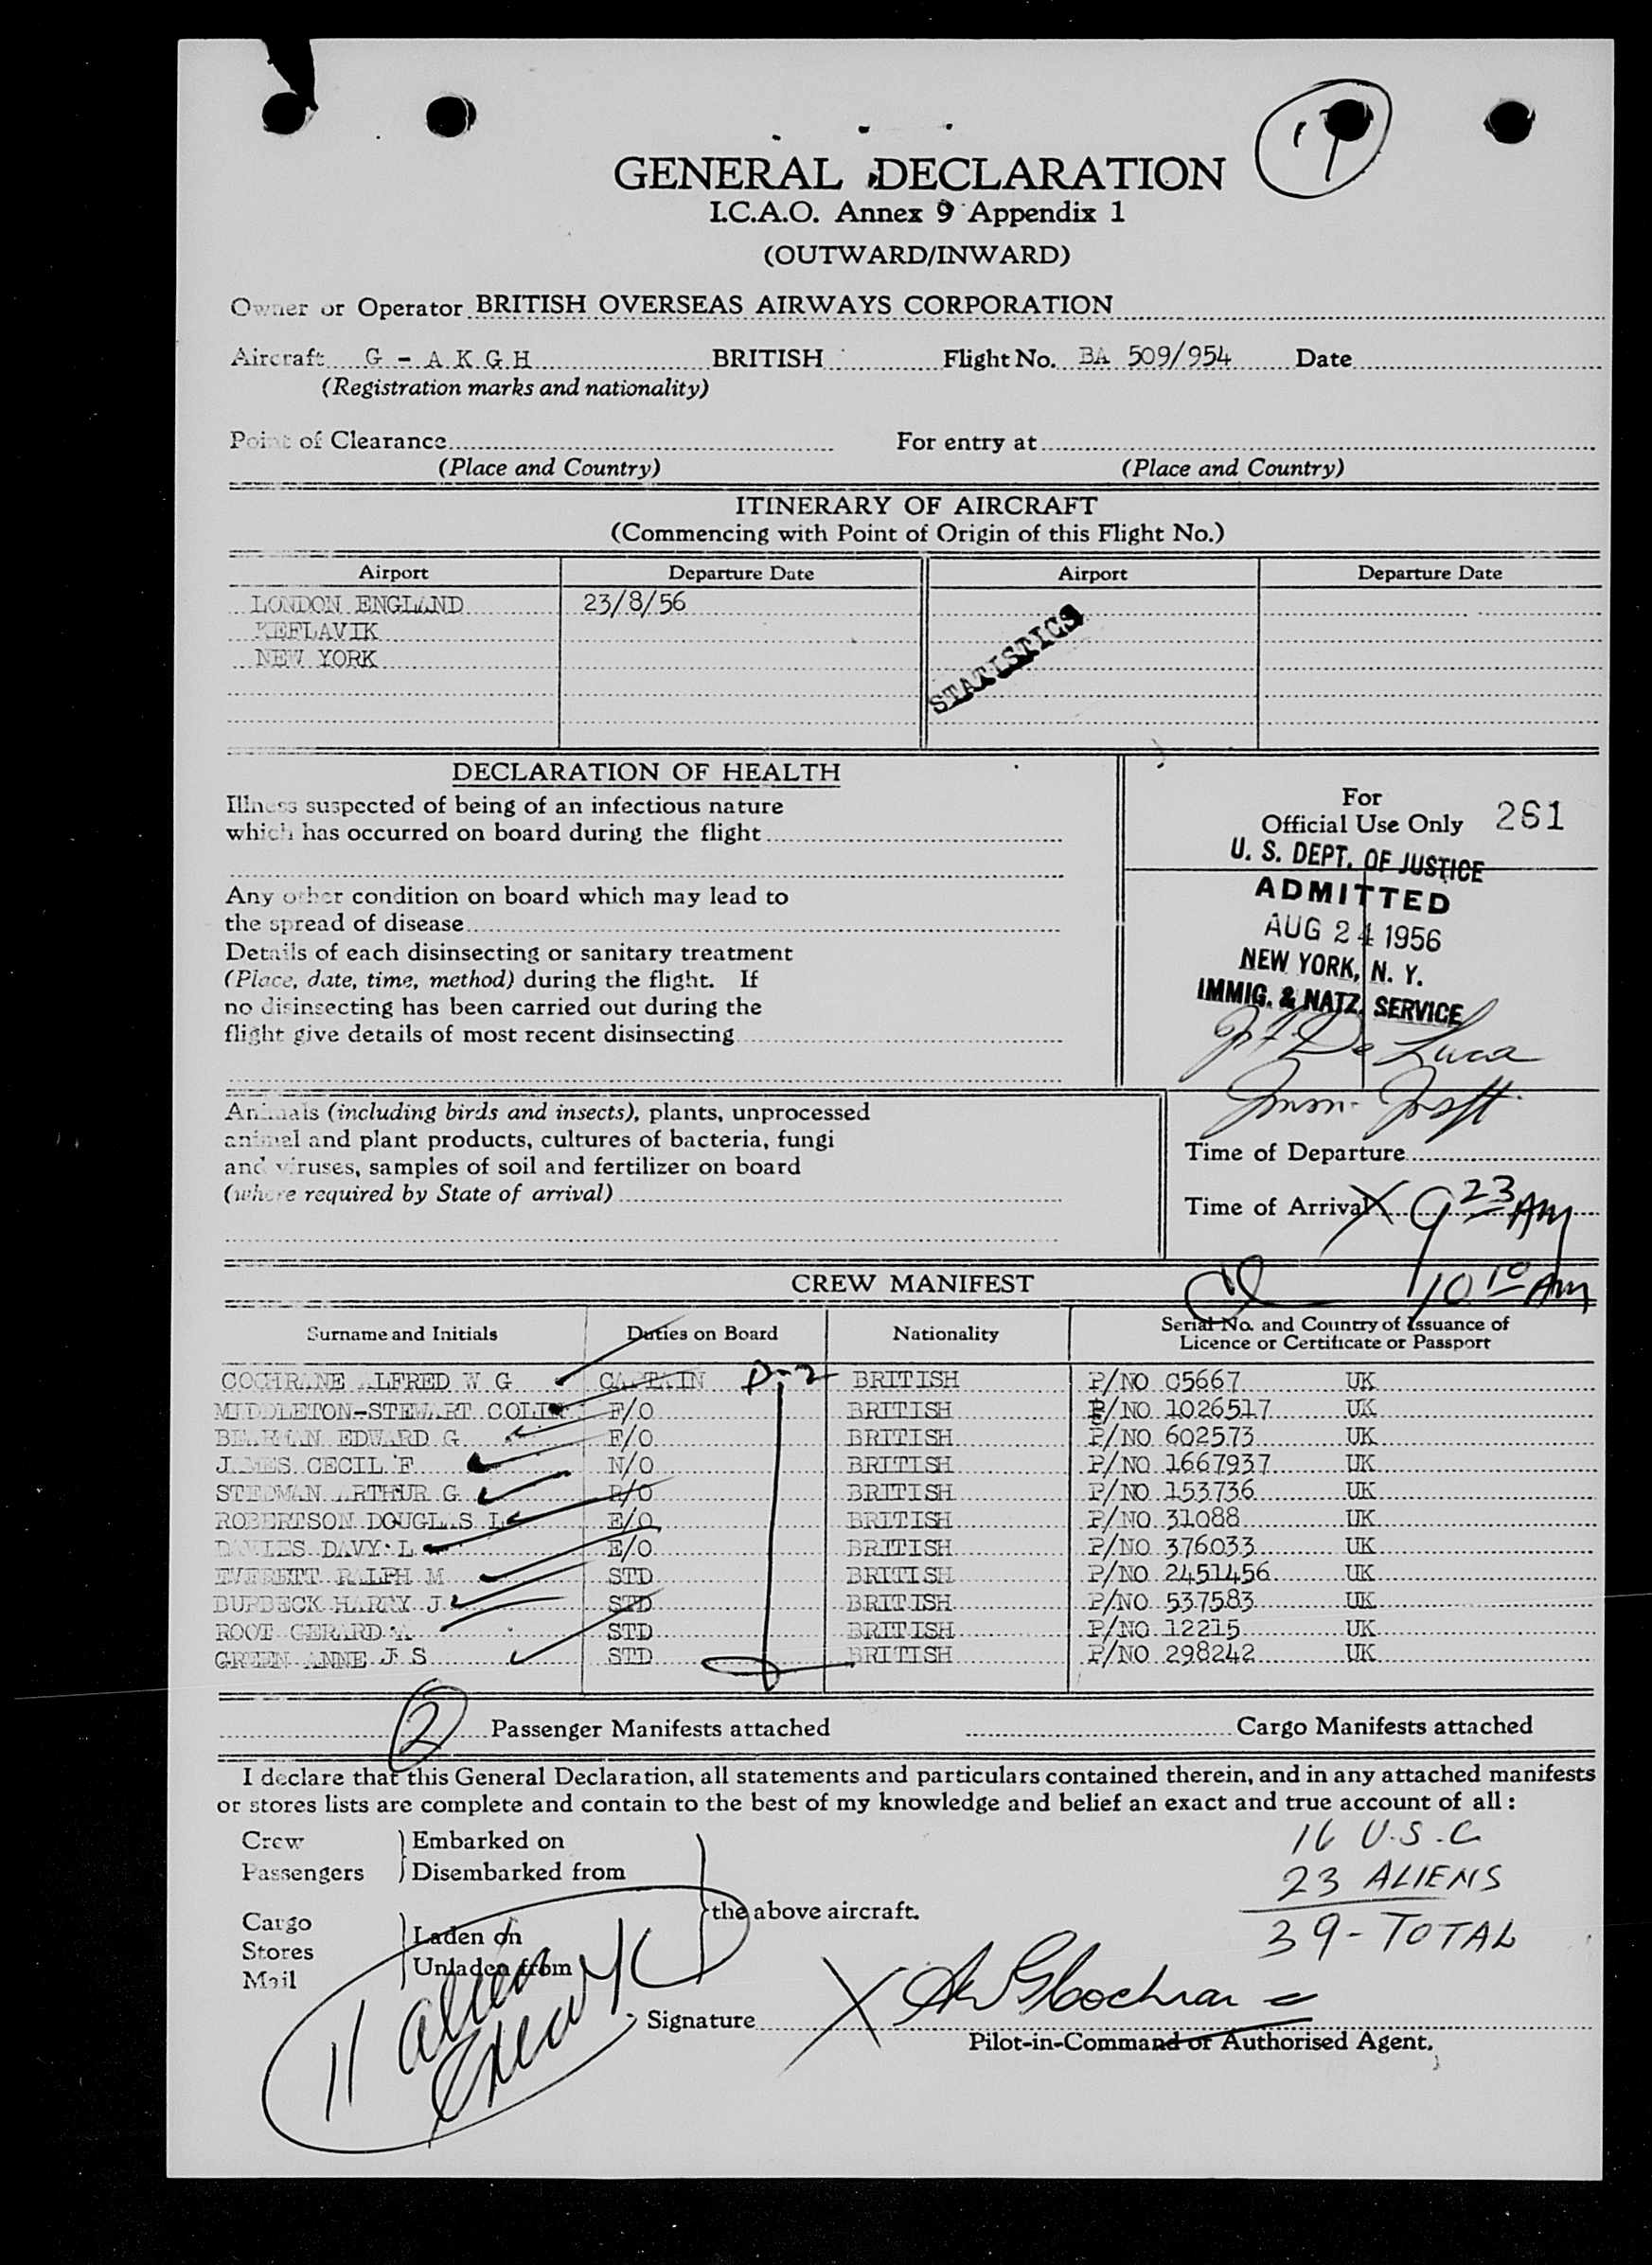 GENERAL DECLARATION
I.C.A.O. Annex 9 Appendix 1
(OUTWARD/INWARD)
Owner or Operator BRITISH OVERSEAS AIRWAYS CORPORATION
Aircraft G - A K G H BRITISH Flight No. BA 509/954 Date
(Registration marks and nationality)
Point of Clearance For entry at
(Place and Country) (Place and Country)
ITINERARY OF AIRCRAFT
(Commencing with Point of Origin of this Flight No.)
Airport Departure Date Airport Departure Date
LONDON ENGLAND 23/8/56
KEFLAVIK
NEW YORK
STATISTICS
DECLARATION OF HEALTH
Illness suspected of being of an infectious nature
which has occurred on board during the flight
Any other condition on board which may lead to
the spread of disease
Details of each disinsecting or sanitary treatment
(Place, date, time, method) during the flight. If
no disinsecting has been carried out during the
flight give details of most recent disinsecting
For
Official Use Only 261
U. S. DEPT. OF JUSTICE
ADMITTED
AUG 24 1956
NEW YORK, N. Y.
IMMIG. & NATZ. SERVICE
De Luca
Animals (including birds and insects), plants, unprocessed
animal and plant products, cultures of bacteria, fungi
and viruses, samples of soil and fertilizer on board
(where required by State of arrival)
Time of Departure
Time of Arrival X 9 23 AM
10 10 AM
CREW MANIFEST
Surname and Initials Duties on Board Nationality Serial No. and Country of Issuance of
Licence or Certificate or Passport
COCHRANE ALFRED W G CAPTAIN D-2 BRITISH P/NO C5667 UK
MIDDLETON-STEWART COLIN F/O BRITISH P/NO 1026517 UK
EDWARD G F/O BRITISH P/NO 602573 UK
JAMES CECIL F N/O BRITISH P/NO 1667937 UK
STEDMAN ARTHUR G R/O BRITISH P/NO 153736 UK
ROBERTSON DOUGLAS L E/O BRITISH P/NO 31088 UK
DAVIES DAVY L E/O BRITISH P/NO 376033 UK
EVERETT RALPH M STD BRITISH P/NO 2451456 UK
BURBECK HARRY J STD BRITISH P/NO 537583 UK
ROOT GERARD A STD BRITISH P/NO 12215 UK
GREEN ANNE J S STD BRITISH P/NO 298242 UK
2 Passenger Manifests attached Cargo Manifests attached
I declare that this General Declaration, all statements and particulars contained therein, and in any attached manifests
or stores lists are complete and contain to the best of my knowledge and belief an exact and true account of all:
Crew Embarked on
Passengers Disembarked from
the above aircraft.
Cargo Laden on
Stores
Mail Unladen from
16 U.S.C
23 ALIENS
39 - TOTAL
11 alien
crew
Signature X AW G Cochrane
Pilot-in-Command or Authorised Agent.